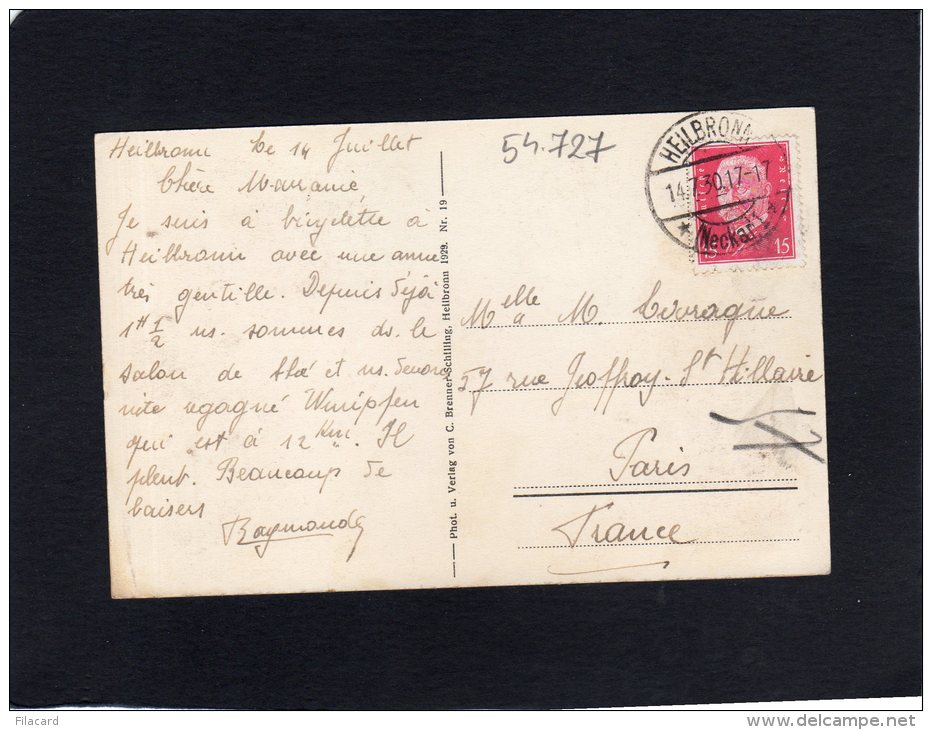 Heilbronn le 14 Juillet
Chère Marraine
Je suis à bicyclette à
Heilbronn avec une amie
très gentille. Depuis déjà
1H 1/2 ns. sommes ds. le
salon de thé et ns. devons
vite regagné Wimpfen
qui est à 12 Km. Il
pleut. Beaucoup de
baisers
Raymonde
Phot. u. Verlag von C. Brenner-Schilling, Heilbronn 1929. Nr. 19
54.727
HEILBRONN
14.7.30.17-17
(Neckar)
15 15
Melle M.
57 rue Geoffroy-St Hillaire
Paris
France
Filacard
www.delcampe.net